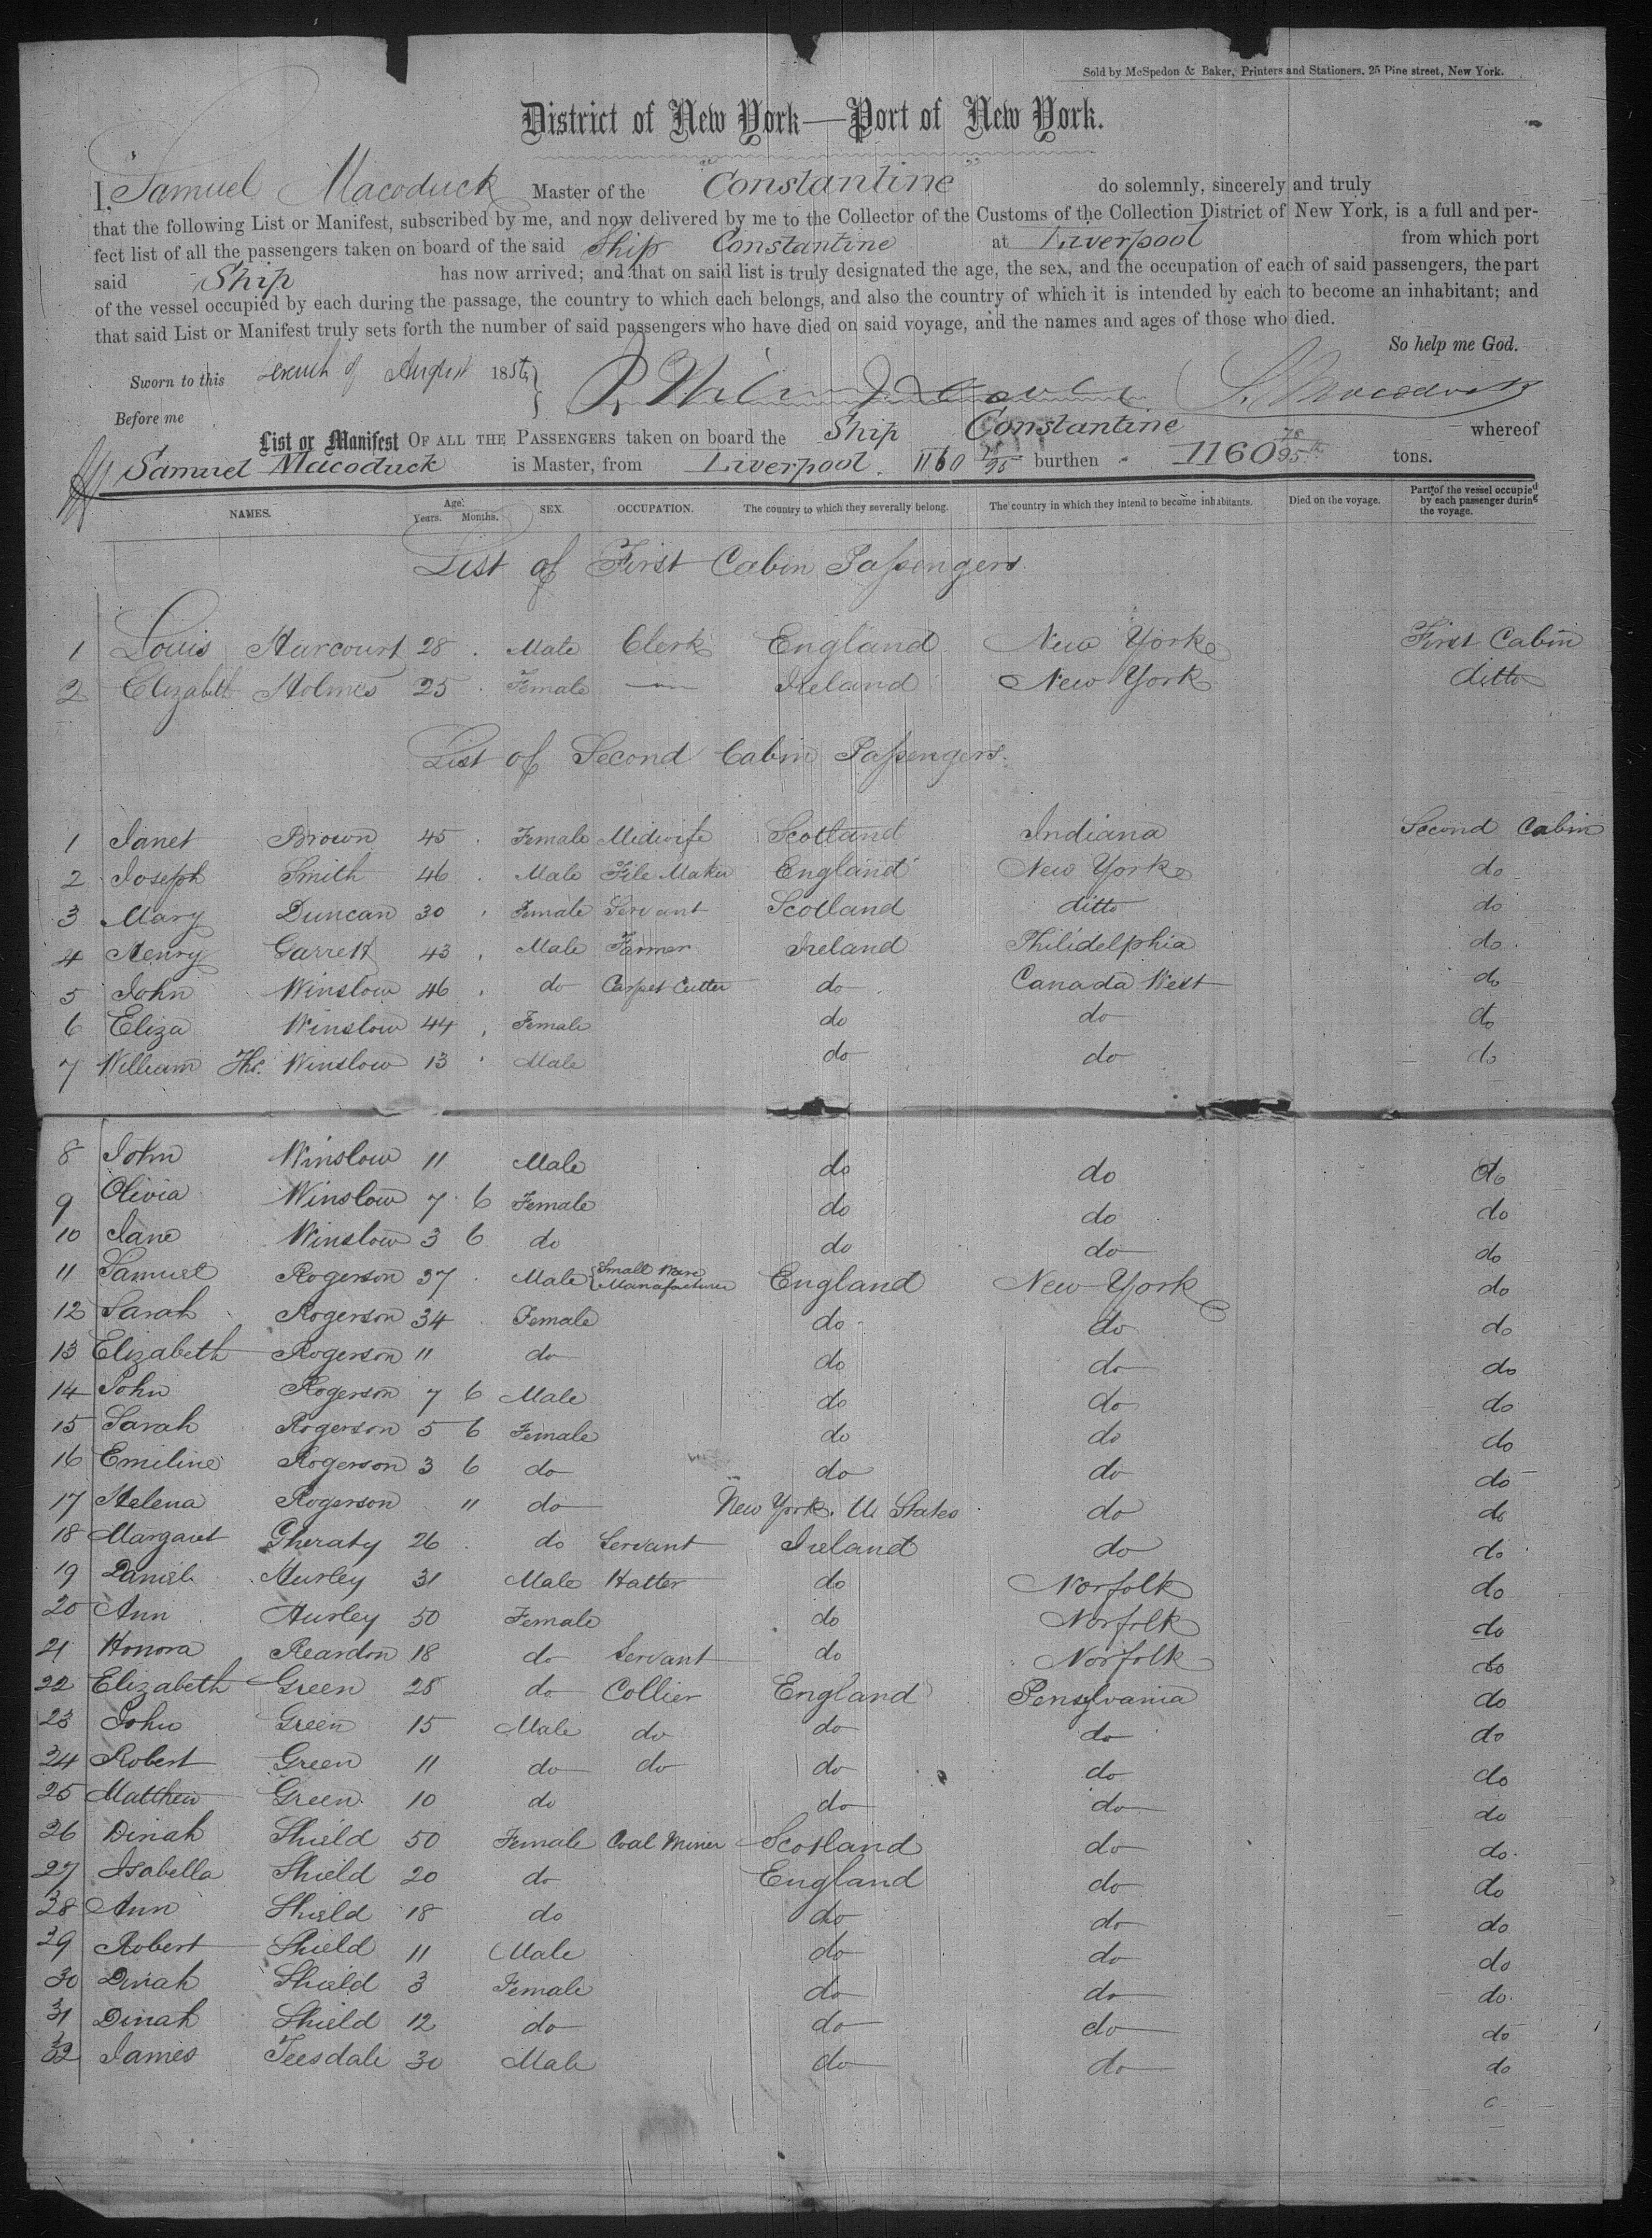 Sold by McSpedon & Baker, Printers and Stationers. 25 Pine street, New York.
District of New York—Port of New York.
I, Samuel Macoduck Master of the "Constantine" do solemnly, sincerely and truly
that the following List or Manifest, subscribed by me, and now delivered by me to the Collector of the Customs of the Collection District of New York, is a full and per-
fect list of all the passengers taken on board of the said Ship Constantine at Liverpool from which port
said Ship has now arrived; and that on said list is truly designated the age, the sex, and the occupation of each of said passengers, the part
of the vessel occupied by each during the passage, the country to which each belongs, and also the country of which it is intended by each to become an inhabitant; and
that said List or Manifest truly sets forth the number of said passengers who have died on said voyage, and the names and ages of those who died.
So help me God.
Sworn to this of August 185
Before me
List or Manifest OF ALL THE PASSENGERS taken on board the Ship Constantine whereof
Samuel Macoduck is Master, from Liverpool. 1160 burthen 1160 75/95 tons.
NAMES. Age. Years. Months. SEX. OCCUPATION. The country to which they severally belong. The country in which they intend to become inhabitants. Died on the voyage. Part of the vessel occupied by each passenger during the voyage.
List of First Cabin Passengers
1 Louis Harcourt 28 Male Clerk England New York First Cabin
2 Elizabeth Holmes 25 Female — Ireland New York ditto
List of Second Cabin Passengers.
1 Janet Brown 45 Female Midwife Scotland Indiana Second Cabin
2 Joseph Smith 46 Male File Maker England New York do
3 Mary Duncan 30 Female Servant Scotland ditto do
4 Henry Garrett 43 Male Farmer Ireland Philidelphia do
5 John Winslow 46 do Carpet Cutter do Canada West do
6 Eliza Winslow 44 Female do do do
7 William Ths. Winslow 13 Male do do do
8 John Winslow 11 Male do do do
9 Olivia Winslow 7 6 Female do do do
10 Jane Winslow 3 6 do do do do
11 Samuel Rogerson 37 Male Small Ware Manafacturer England New York do
12 Sarah Rogerson 34 Female do do do
13 Elizabeth Rogerson 11 do do do do
14 John Rogerson 7 6 Male do do do
15 Sarah Rogerson 5 6 Female do do do
16 Emiline Rogerson 3 6 do do do do
17 Helena Rogerson 11 do New York. U States do do
18 Margaret Gheraty 26 do Servant Ireland do do
19 Daniel Hurley 31 Male Hatter do Norfolk do
20 Ann Hurley 50 Female do Norfolk do
21 Honora Reardon 18 do Servant do Norfolk do
22 Elizabeth Green 25 do Collier England Pensylvania do
23 John Green 15 Male do do do do
24 Robert Green 11 do do do do do
25 Matthew Green 10 do do do do
26 Dinah Shield 50 Female Coal Miner Scotland do do
27 Isabella Shield 20 do England do do
28 Ann Shield 18 do do do do
29 Robert Shield 11 Male do do do
30 Dinah Shield 3 Female do do do
31 Dinah Shield 12 do do do do
32 James Teesdale 30 Male do do do